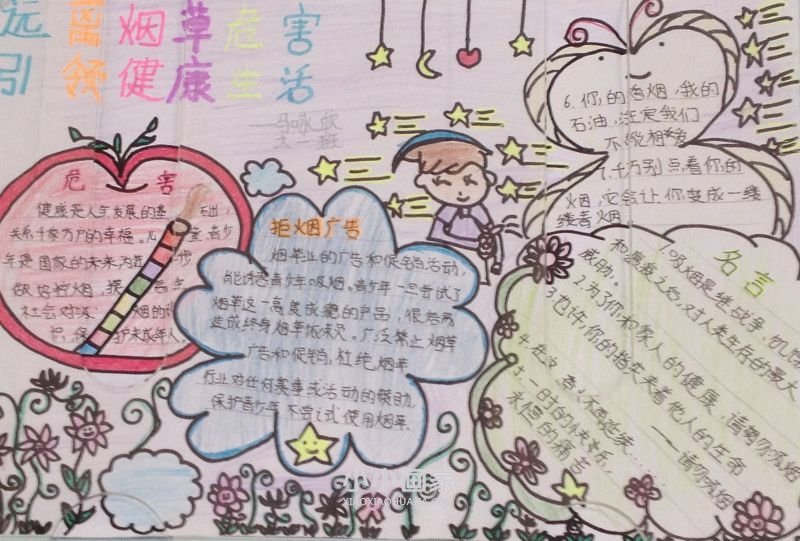 远离烟草危害
引领健康生活
马咏欣
六一班
危害
健康是人类发展的基础，
关系千家万户的幸福。儿童、青少
年是国家的未来，
做好控烟
社会对
拒烟广告
烟草业的广告和促销活动，
能诱惑青少年吸烟。青少年一旦尝试了
烟草这一高度成瘾的产品，很容易
造成终身烟草依赖。广泛禁止烟草
广告和促销，杜绝烟草
行业对任何赛事或活动的赞助，
保护青少年不尝试使用烟草.
6.你的香烟，我的
石油，注定我们
不能相爱
7.千万别点着你的
烟，它会让你变成一缕
缕青烟
名言
1.吸烟是继战争、饥饿
和瘟疫之后，对人类生存的最大
威胁。
2.为了你和家人的健康，请勿吸烟
3.也许，你的指尖夹着他人的生命
——请勿吸烟
5.一时的快乐，
永恒的痛苦
小小画家
XIAOXIAOHUAJIA